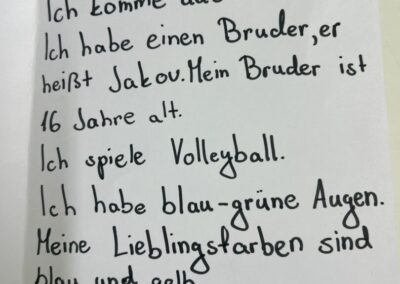 Ich komme aus
Ich habe einen Bruder, er
heißt Jakov. Mein Bruder ist
16 Jahre alt.
Ich spiele Volleyball.
Ich habe blau-grüne Augen.
Meine Lieblingsfarben sind
blau und gelb